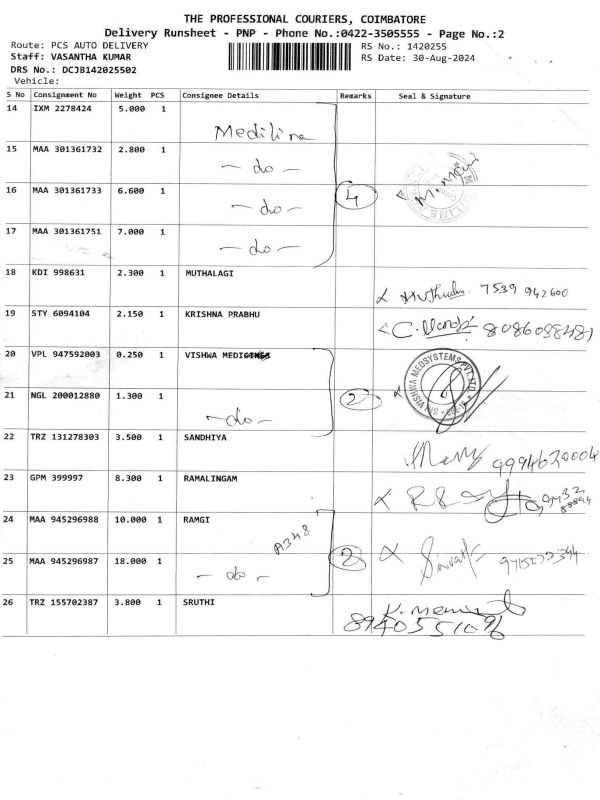 THE PROFESSIONAL COURIERS, COIMBATORE
Delivery Runsheet - PNP - Phone No.:0422-3505555 - Page No.:2
Route: PCS AUTO DELIVERY RS No.: 1420255
Staff: VASANTHA KUMAR RS Date: 30-Aug-2024
DRS No.: DCJB142025502
Vehicle:
S No Consignment No Weight PCS Consignee Details Remarks Seal & Signature
14 IXM 2278424 5.000 1
Mediline
15 MAA 301361732 2.800 1
- do -
16 MAA 301361733 6.600 1 4
- do -
17 MAA 301361751 7.000 1
- do -
18 KDI 998631 2.300 1 MUTHALAGI
7539 942600
19 STY 6094104 2.150 1 KRISHNA PRABHU
20 VPL 947592003 0.250 1 VISHWA MEDICINES
SRI VISHWA MEDSYSTEMS PVT. LTD.
21 NGL 200012880 1.300 1 2
- do -
22 TRZ 131278303 3.500 1 SANDHIYA
9994620004
23 GPM 399997 8.300 1 RAMALINGAM
24 MAA 945296988 10.000 1 RAMGI
A348
25 MAA 945296987 18.000 1 2
- do -
26 TRZ 155702387 3.800 1 SRUTHI